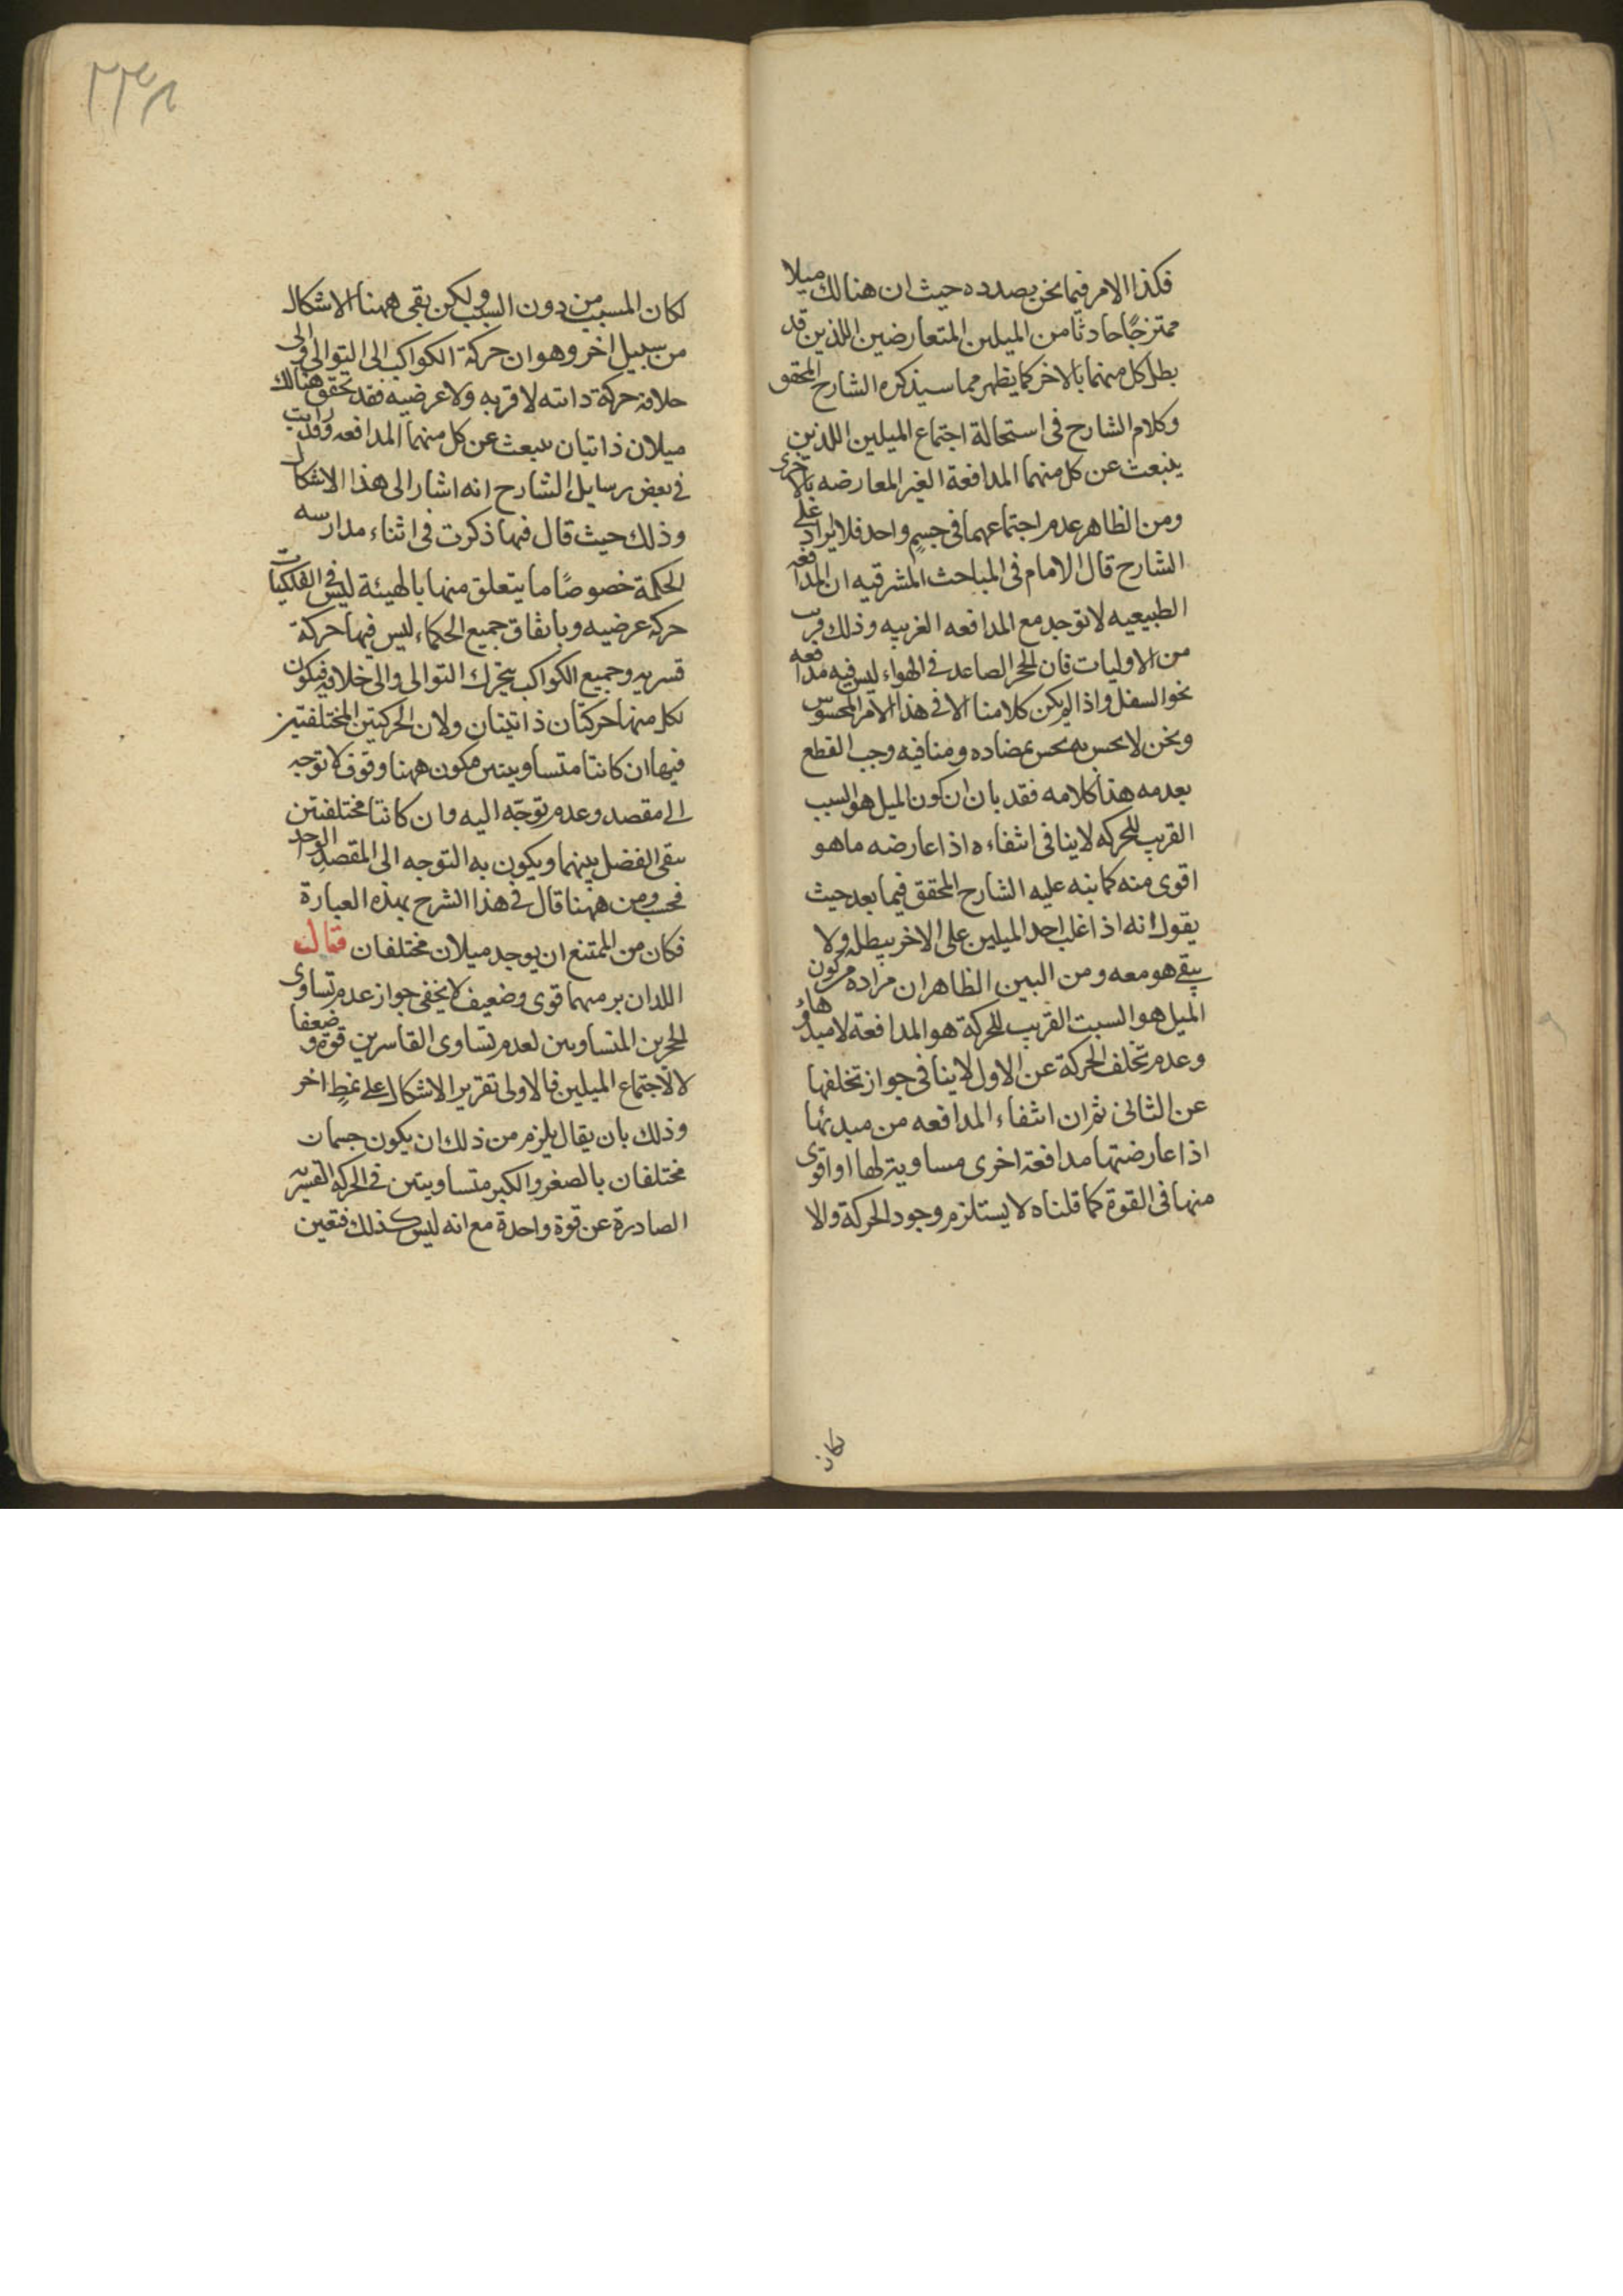 فكذا الامر فيما نحن بصدده حيث ان هنالك ميلا
ممتزجًا حادثا من الميلين المتعارضين اللذين قد
بطل كل منهما بالاخر كما يظهر مما سيذكره الشارح المحقق
وكلام الشارح فى استحالة اجتماع الميلين اللذين
ينبعث عن كل منهما المدافعة الغير المعارضه بالاخرى
ومن الظاهر عدم اجتماعهما فى جسم واحد فلا ايراد على
الشارح قال الامام فى المباحث المشرقيه ان المدافعه
الطبيعيه لا توجد مع المدافعه الغريبه وذلك قريب
من الاوليات فان الحجر الصاعد فى الهواء ليس فيه مدافعه
نحو السفل واذا لم يكن كلامنا الا فى هذا الامر المحسوس
ونحن لا نحس به نحس بمضاده ومنافيه وجب القطع
بعدمه هذا كلامه فقد بان ان كون الميل هو السبب
القريب للحركه لا ينافى انتفاءه اذا عارضه ما هو
اقوى منه كما نبه عليه الشارح المحقق فيما بعد حيث
يقول انه اذا غلب احد الميلين على الاخر يبطله ولا
يبقى هو معه ومن البين الظاهر ان مراده من كون
الميل هو السبب القريب للحركة هو المدافعة لا مبدؤها
وعدم تخلف الحركة عن الاول لا ينافى جواز تخلفها
عن الثانى ثم ان انتفاء المدافعه من مبدئها
اذا عارضتها مدافعة اخرى مساوية لها او اقوى
منها فى القوة كما قلناه لا يستلزم وجود الحركة والا
لكان
٢٣٨
لكان المسبب من دون السبب ولكن بقى ههنا الاشكال
من سبيل اخر وهو ان حركة الكواكب الى التوالى والى
خلافه حركة ذاتيه لا قسريه ولا عرضيه فقد تحقق هنالك
ميلان ذاتيان ينبعث عن كل منهما المدافعه وقد رايت
فى بعض رسايل الشارح انه اشار الى هذا الاشكال
وذلك حيث قال فيها ذكرت فى اثناء مدارسه
الحكمة خصوصًا ما يتعلق منها بالهيئة ليس فى الفلكيات
حركة عرضيه وباتفاق جميع الحكماء ليس فيها حركة
قسريه وجميع الكواكب يتحرك التوالى والى خلافه فيكون
لكل منها حركتان ذاتيتان ولان الحركتين المختلفتين
فيها ان كانتا متساويتين مكون ههنا وقوف لا توجه
الى مقصد وعدم توجّه اليه وان كانتا مختلفتين
يبقى الفضل بينهما ويكون به التوجه الى المقصد الواحد
فحسب ومن ههنا قال فى هذا الشرح بهذه العبارة
فكان من الممتنع ان يوجد ميلان مختلفان قال
اللذان يرميهما قوى وضعيف لا يخفى جواز عدم تساوى
الحجرين المتساويين لعدم تساوى القاسرين قوة وضعفا
لا لاجتماع الميلين فالاولى تقرير الاشكال على نمطٍ اخر
وذلك بان يقال يلزم من ذلك ان يكون جسمان
مختلفان بالصغر والكبر متساويتين فى الحركة القسريه
الصادرة عن قوة واحدة مع انه ليس كذلك فتعين